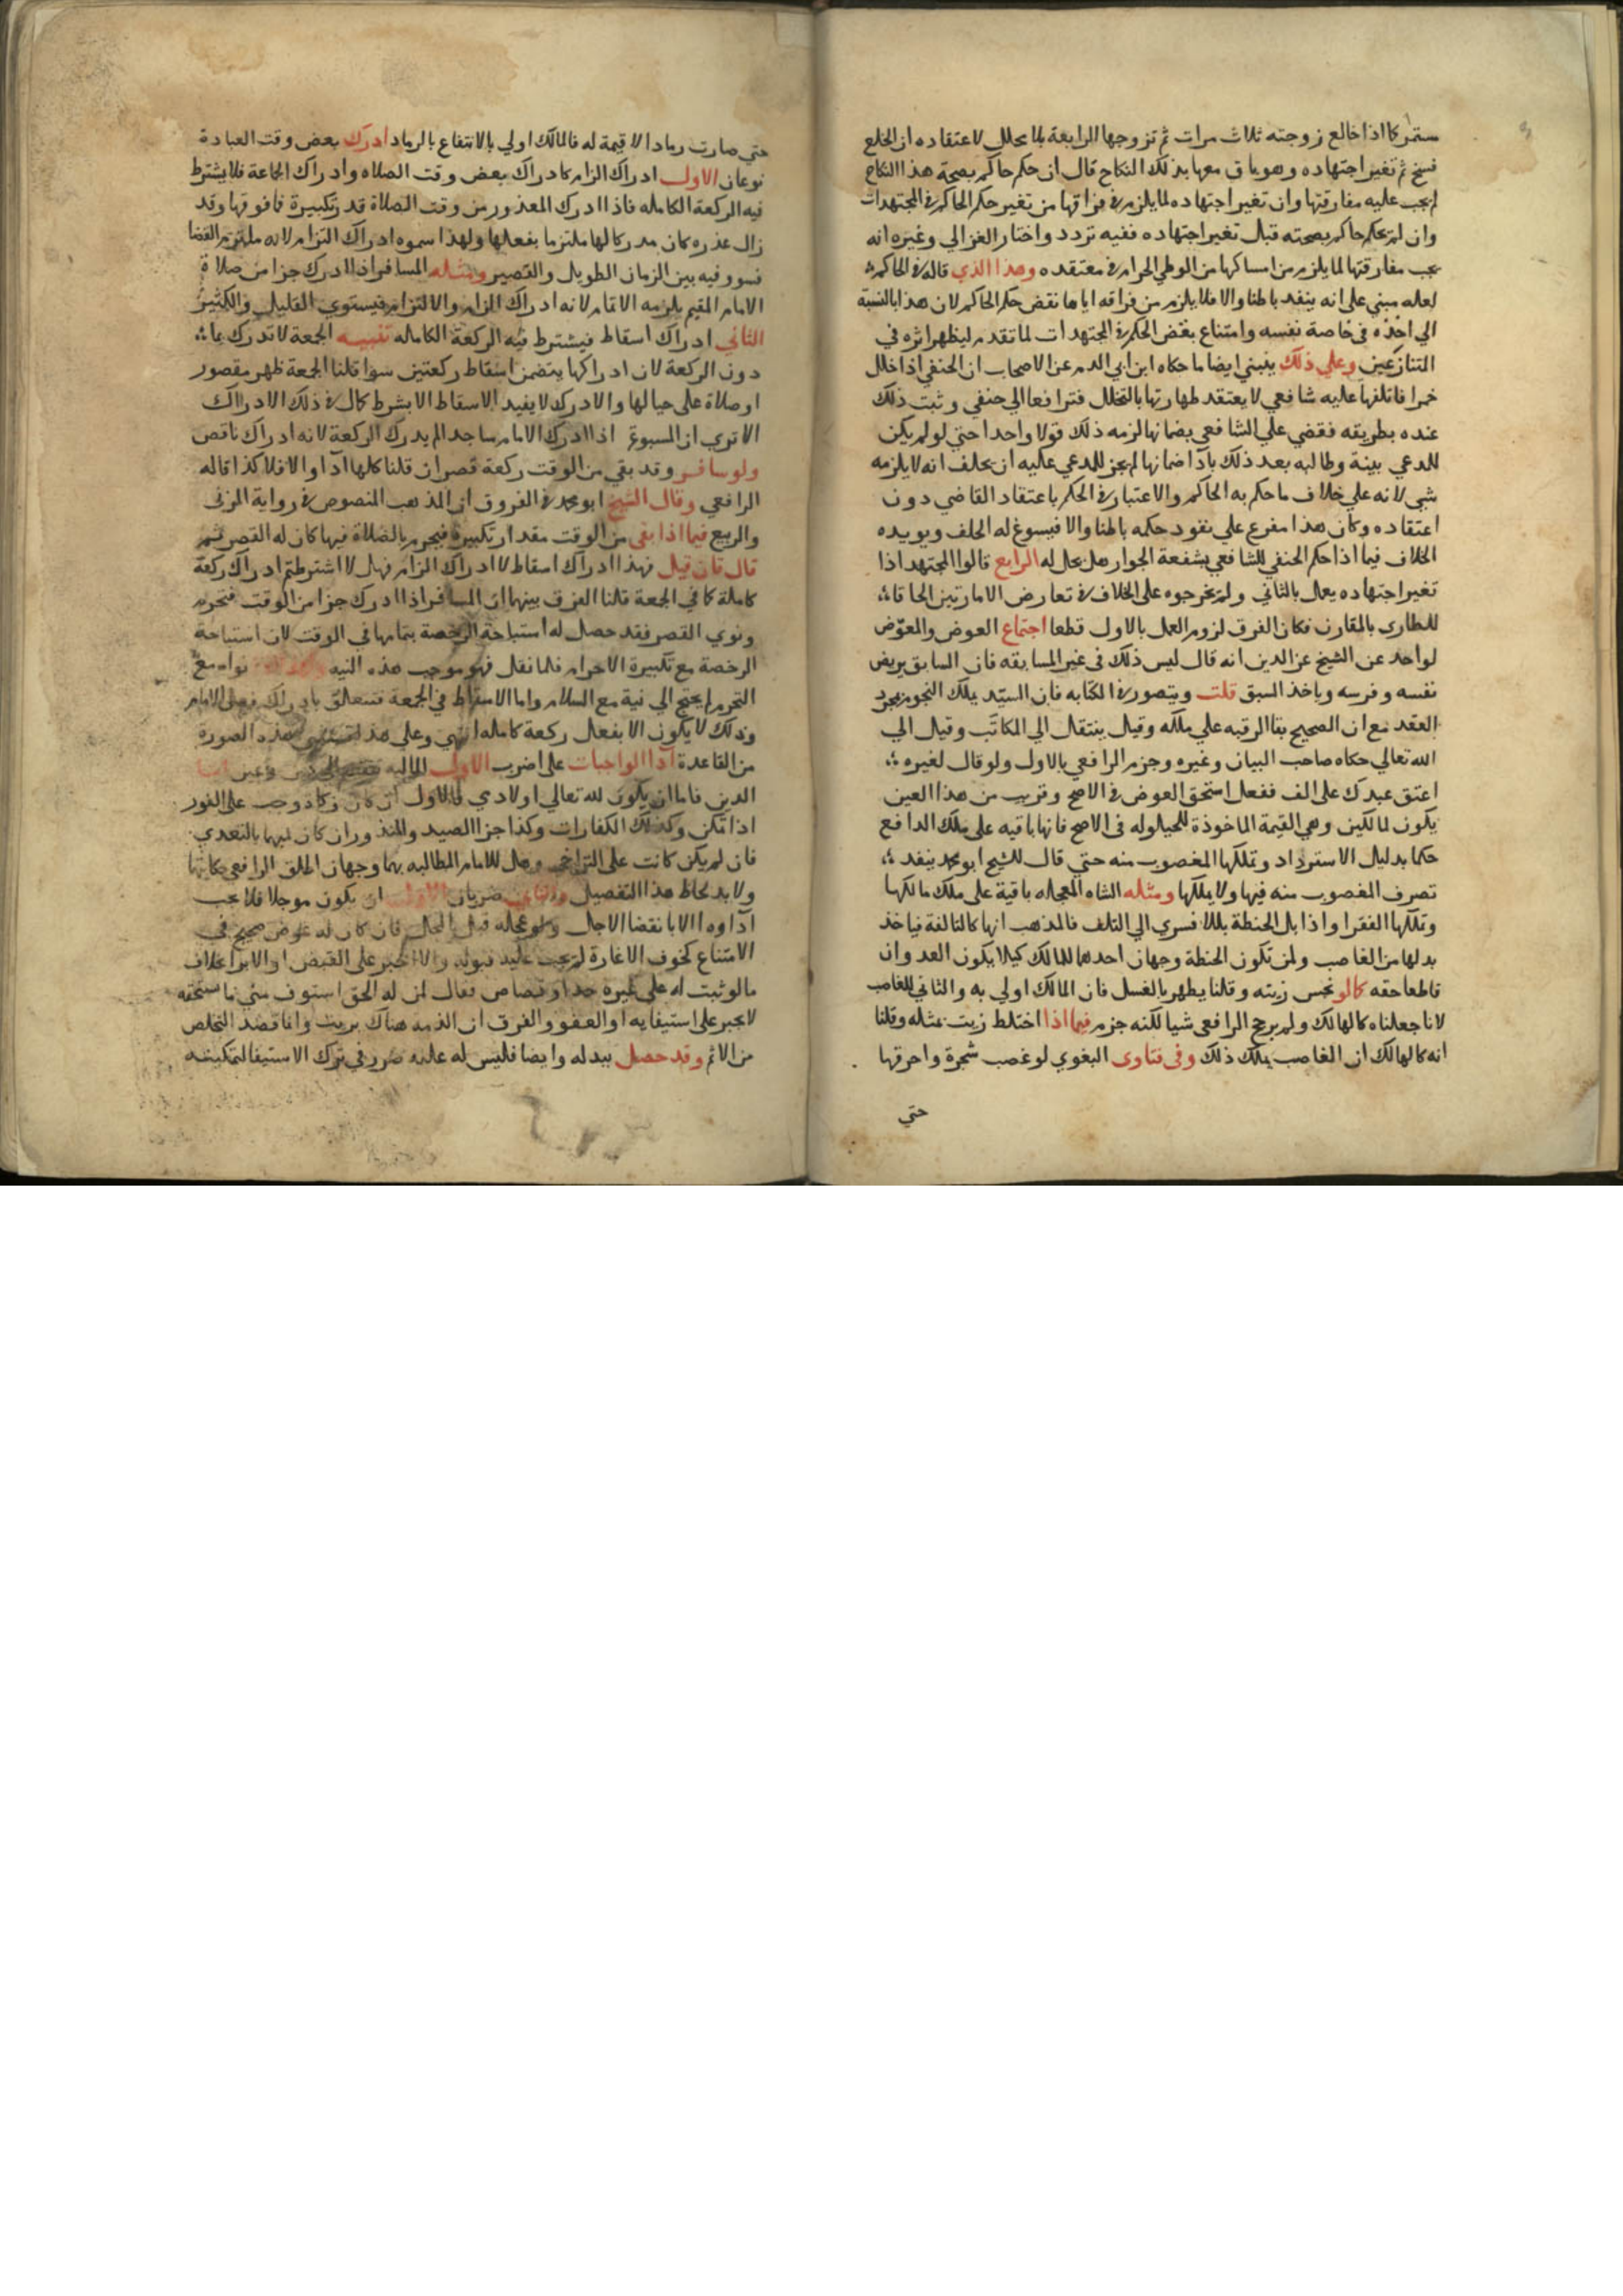 ستمر كما اذا خالع زوجته ثلاث مرات ثم تزوجها الرابعة بلا محلل لاعتقاده ان الخلع
فسخ ثم تغير اجتهاده وهو باق معها بذلك النكاح قال ان حكم حاكم بصحة هذا النكاح
لم يجب عليه مفارقتها وان تغير اجتهاده لما يلزم في فراقها من تغير حكم الحاكم في المجتهدات
وان لم يحكم حاكم بصحته قبل تغير اجتهاده ففيه تردد واختار الغزالي وغيره انه
يجب مفارقتها لما يلزم من امساكها من الوطي الحرام في معتقده وهذا الذي قاله في الحاكم
لعله مبني على انه ينفد باطنا والا فلا يلزم من فراقه اياها نقض حكم الحاكم لان هذا بالنسبة
الي اخذه في خاصة نفسه وامتناع بعض الحكم في المجتهدات لما تقدم ليظهر اثره في
التنازعين وعلي ذلك ينبني ايضا ما حكاه ابن ابي الدم عن الاصحاب ان الحنفي اذا خلل
خمرا فاتلفها عليه شافعي لا يعتقد طهارتها بالتخلل فترافعا الي حنفي وثبت ذلك
عنده بطريقه فقضي علي الشافعي بضمانها لزمه ذلك قولا واحدا حتي لو لم يكن
للمدعي بينة وطالبه بعد ذلك بادآ ضمانها لم يجز للمدعي عليه ان يحلف انه لا يلزمه
شي لانه علي خلاف ما حكم به الحاكم والاعتبار في الحكم باعتقاد القاضي دون
اعتقاده وكان هذا مفرع علي نفود حكمه باطنا والا فيسوغ له الحلف ويويده
الخلاف فيما اذا حكم الحنفي للشافعي بشفعة الجوار هل يحل له الرابع قالوا المجتهد اذا
تغير اجتهاده يعمل بالثاني ولم يخرجوه على الخلاف في تعارض الامارتين الحاقا
للطاري بالمقارن فكان الفرق لزوم العمل بالاول قطعا اجتماع العوض والمعوّض
لواحد عن الشيخ عز الدين انه قال ليس ذلك في غير المسابقه فان السابق يريض
نفسه وفرسه وياخذ السبق قلت ويتصور في الكتابه فان السيّد يملك النجوم بمجرد
العقد مع ان الصحيح بقا الرقبه علي ملكه وقيل ينتقل الي المكاتَب وقيل الي
الله تعالي حكاه صاحب البيان وغيره وجزم الرافعي بالاول ولو قال لغيره
اعتق عبدك على الف ففعل استحق العوض في الاصح وقريب من هذا العين
يكون لمالكين وهي القيمة الماخوذة للحيلوله في الاصح فانها باقيه على ملك الدافع
حكما بدليل الاسترداد وتملكها المغصوب منه حتي قال الشيخ ابو محمد ينفد
تصرف المغصوب منه فيها ولا يملكها ومثله الشاه المعجله باقية على ملك مالكها
وتملكها الفقرا واذا بل الحنطة بللا فسري الي التلف فالمذهب انها كالتالفة فياخذ
بدلها من الغاصب ولمن تكون الحنطة وجهان احدهما للمالك كيلا يكون العدوان
قاطعا حقه كما لو نجس زيته وقلنا يطهر بالغسل فان المالك اولي به والثاني للغاصب
لانا جعلناه كالهالك ولم يرجح الرافعي شيا لكنه جزم فيما اذا اختلط زيت بمثله وقلنا
انه كالهالك ان الغاصب يملك ذلك وفي فتاوى البغوي لو غصب شجرة واحرقها
حتي
حتي صارت رمادا لا قيمة له فالمالك اولي بالانتفاع بالرماد ادرك بعض وقت العبادة
نوعان الاول ادراك الزام كادراك بعض وقت الصلاه وادراك الجماعة فلا يشترط
فيه الركعة الكامله فاذا ادرك المعذور من وقت الصلاة قدر تكبيرة فما فوقها وقد
زال عذره كان مدركا لها ملتزما بفعلها ولهذا سموه ادراك التزام لانه ملتزم القضا
فسوو فيه بين الزمان الطويل والقصير ومثله المسافر اذا ادرك جزا من صلاة
الامام المقيم يلزمه الاتمام لانه ادراك الزام والالتزام فيستوي القليل والكثير
الثاني ادراك اسقاط فيشترط فيه الركعة الكامله تنبيه الجمعة لا تدرك بما
دون الركعة لان ادراكها يتضمن اسقاط ركعتين سوا قلنا الجمعة ظهر مقصور
او صلاة على حيالها والادرك لا يفيد الاسقاط الا بشرط كمال في ذلك الادراك
الا تري ان المسبوق اذا ادرك الامام ساجدا لم يدرك الركعة لانه ادراك ناقص
ولو سافر وقد بقي من الوقت ركعة قصر ان قلنا كلها ادآ والا فلا كذا قاله
الرافعي وقال الشيخ ابو محمد في الفروق ان المذهب المنصوص في رواية المزني
والربيع فيما اذا بقي من الوقت مقدار تكبيرة فيحرم بالصلاة فيها كان له القصر ثم
قال فان قيل فهذا ادراك اسقاط لا ادراك الزام فهل لا اشترطتم ادراك ركعة
كاملة كما في الجمعة قلنا الفرق بينهما ان المسافر اذا ادرك جزا من الوقت فتحرم
ونوي القصر فقد حصل له استباحة الرخصة بتمامها في الوقت لان استباحة
الرخصة مع تكبيرة الاحرام فلما نقل فهو موجب هذه النيه نواه مع
التحرم لم يحتج الي نية مع السلام واما الاسقاط في الجمعة فتتعلق بادراك فعل الامام
وذلك لا يكون الا بفعل ركعة كامله انتهي وعلي هذا هذه الصورة
من القاعدة ادآ الواجبات على اضرب الاول الماليه دين وعين اما
الدين فاما ان يكون لله تعالي او لادمي فالاول ان كان زكاة وجب على الفور
اذا تمكن وكذلك الكفارات وكذا جزا الصيد والمنذور ان كان لزمها بالتعدي
فان لم يكن كانت على التراخي وهل للامام المطالبه بهما وجهان اطلق الرافعي حكايتها
ولا بد لحاظ هذا التفصيل والثاني ضربان الاول ان يكون موجلا فلا يجب
ادآوه الا بانقضا الاجل ولو عجله قبل المحل فان كان له غرض صحيح في
الامتناع كخوف الاغارة لم يجب عليه قبوله والا اجبر على القبض او الابرا بخلاف
ما لو ثبت له على غيره حد او قصاص فقال لمن له الحق استوف مني ما تستحقه
لا يجبر على استيفايه او العفو والفرق ان الذمه هناك بريت وانما قصد التخلص
من الاثم وقد حصل ببدله وايضا فليس له عليه ضرر في ترك الاستيفا لتمكينه